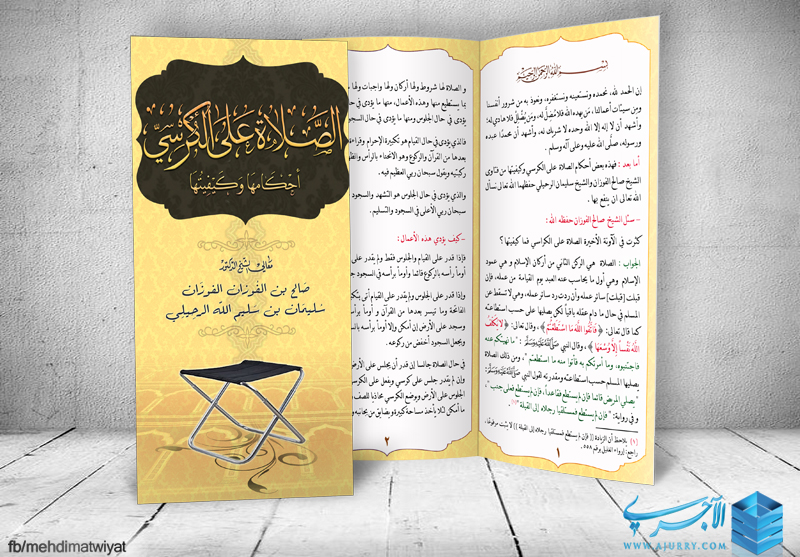 الصلاة على الكرسي
أحكامها وكيفيتها
معالي الشيخ الدكتور
صالح بن الفوزان الفوزان
سليمان بن سليم الله الرحيلي
بسم الله الرحمن الرحيم
إن الحمد لله، نحمده ونستعينه ونستغفره، ونعوذ به من شرور أنفسنا
ومن سيئات أعمالنا، من يهده الله فلا مضل له، ومن يضلل فلا هادي له؛
وأشهد أن لا إله إلا الله وحده لا شريك له، وأشهد أن محمدًا عبده
ورسوله، صلى الله عليه وعلى آله وسلم.
أما بعد : فهذه بعض أحكام الصلاة على الكرسي وكيفيتها من فتاوى
الشيخ صالح الفوزان والشيخ سليمان الرحيلي حفظهما الله تعالى نسأل
الله تعالى ان ينفع بها .
– سئل الشيخ صالح الفوزان حفظه الله :
كثرت في الآونة الأخيرة الصلاة على الكراسي فما كيفيتها ؟
الجواب : الصلاة هي الركن الثاني من أركان الإسلام و هي عمود
الإسلام وهي أول ما يحاسب عنه العبد يوم القيامة من عمله، فإن
قبلت [قبلت] سائر عمله وأن ردت رد سائر عمله، وهي لا تسقط عن
المسلم في حال ما دام عقله باقياً لكن يصليها على حسب استطاعته
كما قال تعالى: ﴿ فَاتَّقُوا اللَّهَ مَا اسْتَطَعْتُمْ ﴾، وقال تعالى: ﴿ لَا يُكَلِّفُ
اللَّهُ نَفْسًا إِلَّا وُسْعَهَا ﴾ ، وقال النبي ﷺ: " ما نهيتكم عنه
فاجتنبوه، وما أمرتكم به فأتوا منه ما استطعتم "، ومن ذلك الصلاة
يصليها المسلم حسب استطاعته ومقدرته لقول النبي ﷺ
"يصلي المريض قائما فإن لم يستطع فقاعداً، فإن لم يستطع فعلى جنب "،
و في رواية: " فإن لم يستطع فمستلقيا رجلاه إلى القبلة "(١).
(١) يلاحظ أن الزيادة (( فإن لم يستطع فمستلقيا رجلاه إلى القبلة )) لا يثبت مرفوعا .
راجع: إرواء الغليل برقم ٥٥٨.
١
و الصلاة لها شروط ولها أركان ولها واجبات ولها
بما يستطيع منها وهذه الأعمال، منها ما يؤدى في
يؤدى في حال الجلوس ومنها ما يؤدى في حال
فالذي يؤدى في حال القيام هو تكبيرة الإحرام وقراءة
بعدها من القرآن والركوع وهو الانحناء بالرأس والظهر
ركبتيه ويقول سبحان ربي العظيم فيه.
والذي يؤدى في حال الجلوس هو التشهد والسجود
سبحان ربي الأعلى في السجود والتسليم .
– كيف يؤدي هذه الأعمال:
فإذا قدر على القيام والجلوس فقط ولم يقدر على
أومأ رأسه بالركوع قائما وأومأ برأسه في السجود
وإذا قدر على الجلوس ولم يقدر على القيام أتى بتكبيرة
الفاتحة وما تيسر بعدها من القرآن و أومأ برأسه
وسجد على الأرض إن أمكن وإلا أومأ برأسه
ويجعل السجود أخفض من ركوعه.
في حال الصلاة جالسا إن قدر أن يجلس على الأرض
وإن لم يقدر جلس على كرسي ويفعل على الكرسي
الجلوس على الأرض ووضع الكرسي محاذيا للصف
ما أمكن لئلا يأخذ مساحة كبيرة ويضايق من بجانبه
٢
fb/mehdimatwiyat
الآجري
WWW.AJURRY.COM